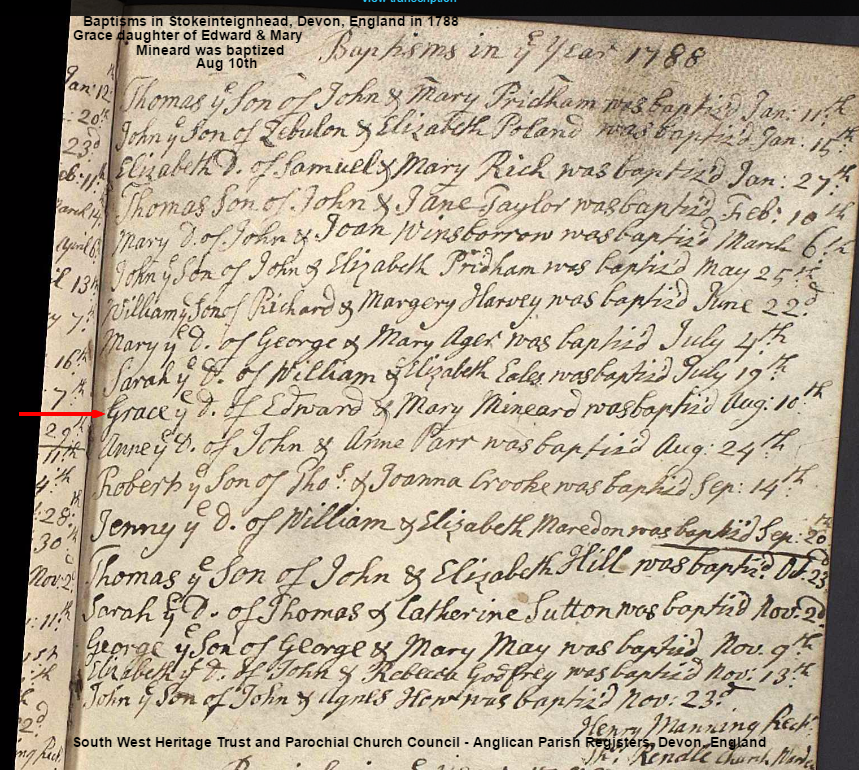 view transcription
Baptisms in Stokeinteignhead, Devon, England in 1788
Grace daughter of Edward & Mary
Mineard was baptized
Aug 10th
Baptisms in ye Year 1788
Jan: 12th
Thomas ye Son of John & Mary Pridham was baptiz'd Jan: 11th
: 20th
John ye Son of Zebulon & Elizabeth Poland was baptiz'd Jan: 15th
23d
Elizabeth D. of Samuel & Mary Rich was baptiz'd Jan: 27th
eb: 11th
Thomas Son of John & Jane Taylor was baptiz'd Feb: 10th
March
Mary D. of John & Joan Winsborrow was baptiz'd March 6th
April 6
John ye Son of John & Elizabeth Pridham was baptiz'd May 25th
il 13th
William ye Son of Richard & Margery Harvey was baptiz'd June 22d
y 7th
Mary ye D. of George & Mary Ager was baptiz'd July 4th
16th
Sarah ye D. of William & Elizabeth Eales was baptiz'd July 19th
7th
Grace ye D. of Edward & Mary Mineard was baptiz'd Aug: 10th
29th
Anne ye D. of John & Anne Parr was baptiz'd Aug: 24th
11th
4th
Robert ye Son of Thos. & Joanna Crooke was baptiz'd Sep: 14th
: 28th
Jenny ye D. of William & Elizabeth Maredon was baptiz'd Sep: 20th
30th
Thomas ye Son of John & Elizabeth Hill was baptiz'd Oct: 23d
Nov: 2d
Sarah ye D. of Thomas & Catherine Sutton was baptiz'd Nov: 2d
: 11th
George ye Son of George & Mary May was baptiz'd Nov. 9th
Elizabeth ye D. of John & Rebecca Godfrey was baptiz'd Nov: 13th
John ye Son of John & Agnes How was baptiz'd Nov: 23d
22d
Henry Manning Rectr.
South West Heritage Trust and Parochial Church Council - Anglican Parish Registers, Devon, England
Thos. Rendle Church Warden